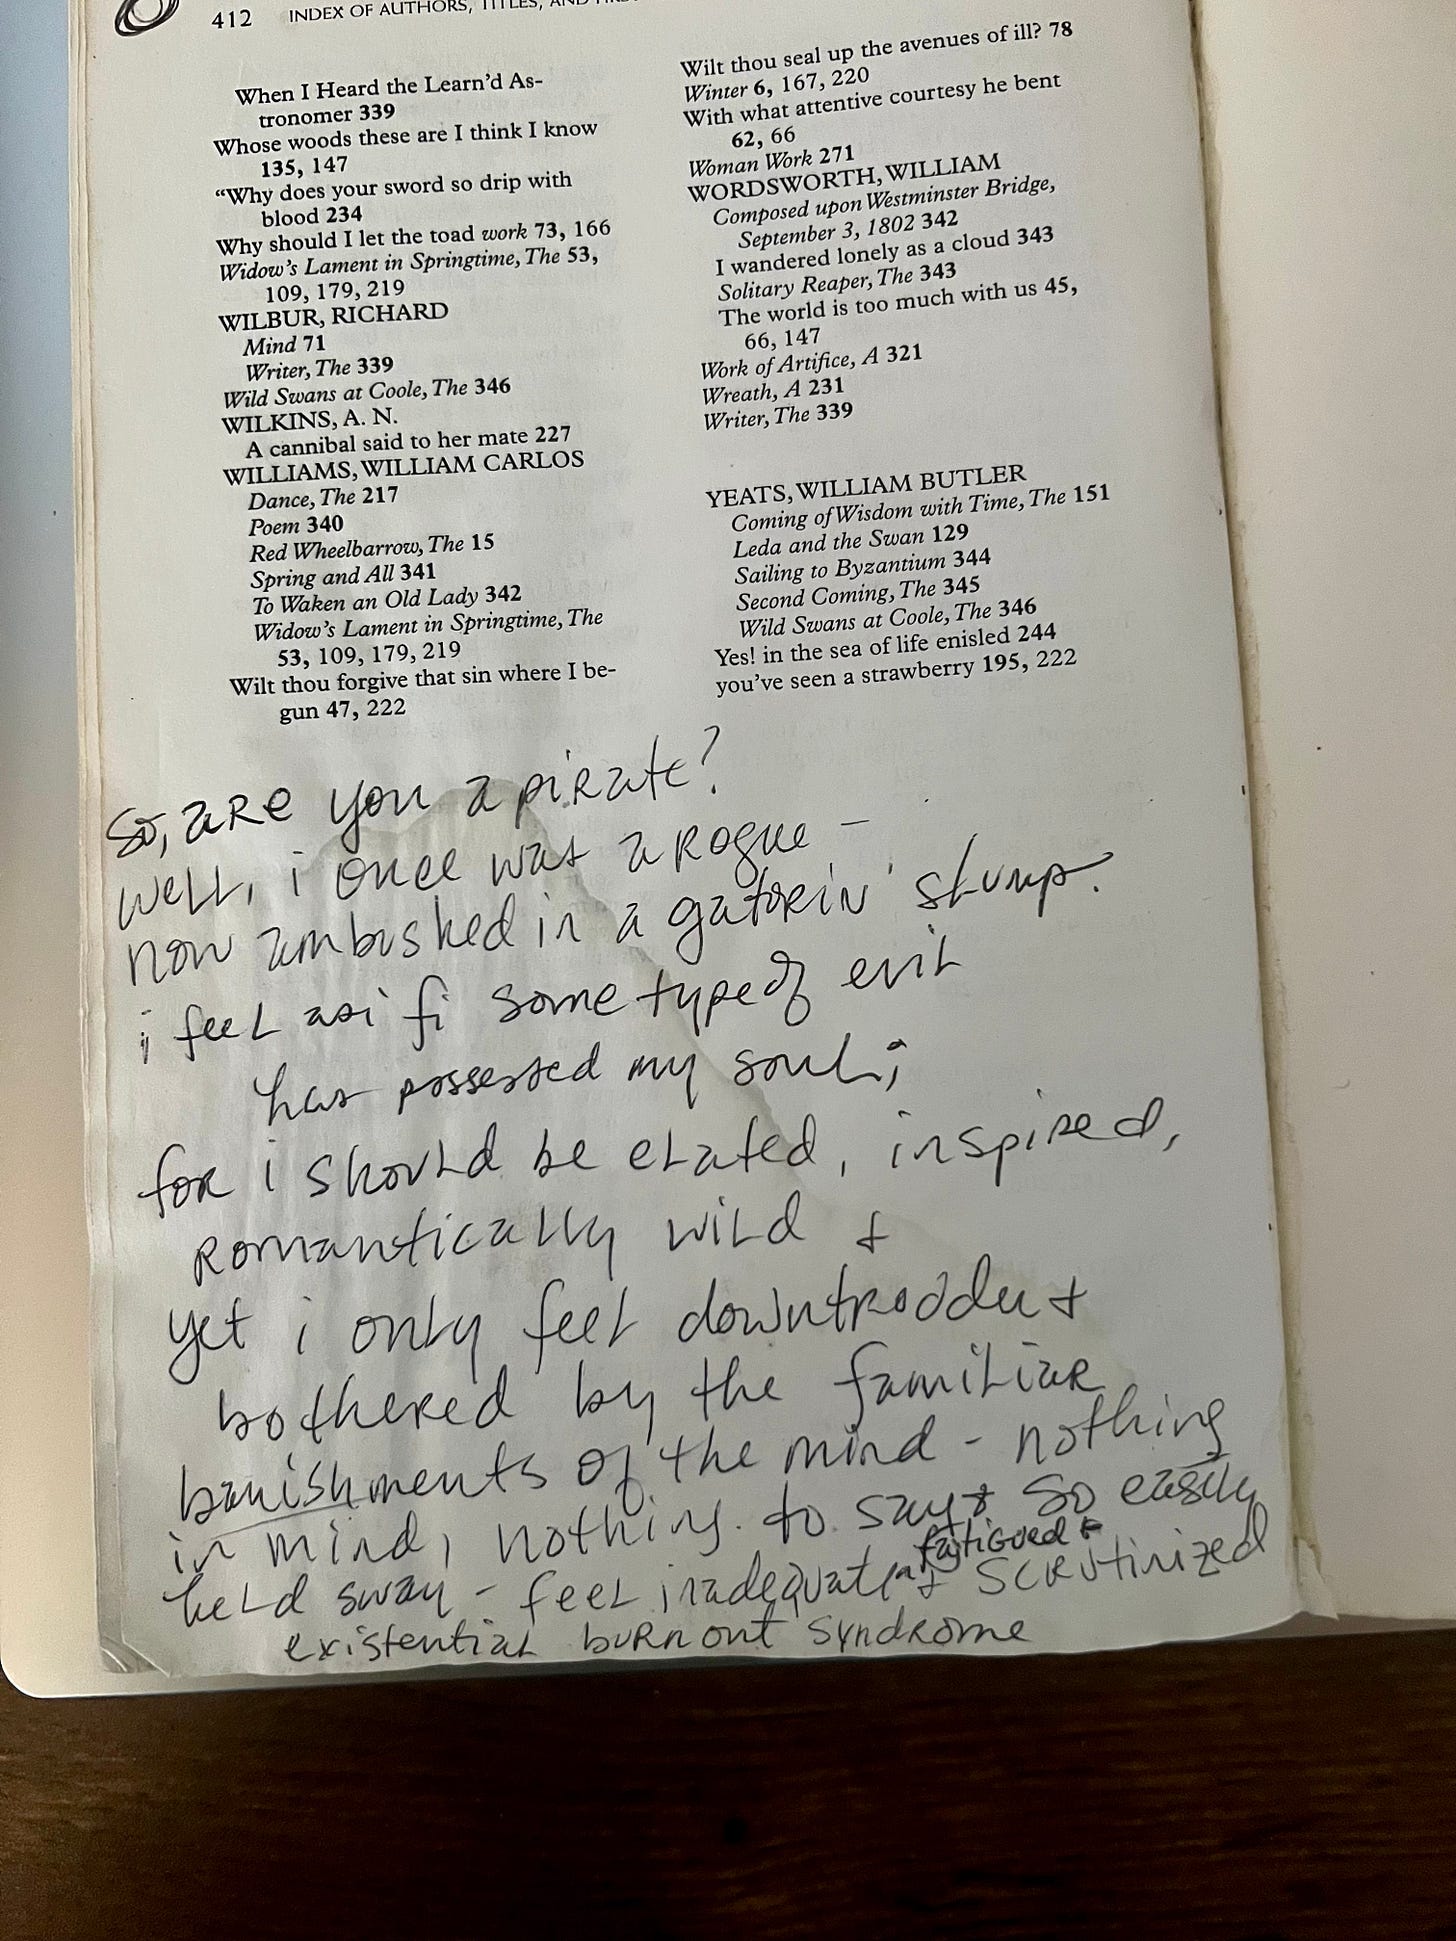 412 INDEX OF AUTHORS, TITLES, AND
When I Heard the Learn'd As-
tronomer 339
Whose woods these are I think I know
135, 147
“Why does your sword so drip with
blood 234
Why should I let the toad work 73, 166
Widow's Lament in Springtime, The 53,
109, 179, 219
WILBUR, RICHARD
Mind 71
Writer, The 339
Wild Swans at Coole, The 346
WILKINS, A. N.
A cannibal said to her mate 227
WILLIAMS, WILLIAM CARLOS
Dance, The 217
Poem 340
Red Wheelbarrow, The 15
Spring and All 341
To Waken an Old Lady 342
Widow's Lament in Springtime, The
53, 109, 179, 219
Wilt thou forgive that sin where I be-
gun 47, 222
Wilt thou seal up the avenues of ill? 78
Winter 6, 167, 220
With what attentive courtesy he bent
62, 66
Woman Work 271
WORDSWORTH, WILLIAM
Composed upon Westminster Bridge,
September 3, 1802 342
I wandered lonely as a cloud 343
Solitary Reaper, The 343
The world is too much with us 45,
66, 147
Work of Artifice, A 321
Wreath, A 231
Writer, The 339
YEATS, WILLIAM BUTLER
Coming of Wisdom with Time, The 151
Leda and the Swan 129
Sailing to Byzantium 344
Second Coming, The 345
Wild Swans at Coole, The 346
Yes! in the sea of life enisled 244
you've seen a strawberry 195, 222
So, are you a pirate?
well, i once was a rogue –
now ambushed in a gatorin' stump.
i feel as i fi some type of evil
has possessed my soul;
for i should be elated, inspired,
romantically wild &
yet i only feel downtrodden &
bothered by the familiar
banishments of the mind - nothing
in mind, nothing to say & so easily
held sway - feel inadequate & fatigued & scrutinized
existential burnout syndrome